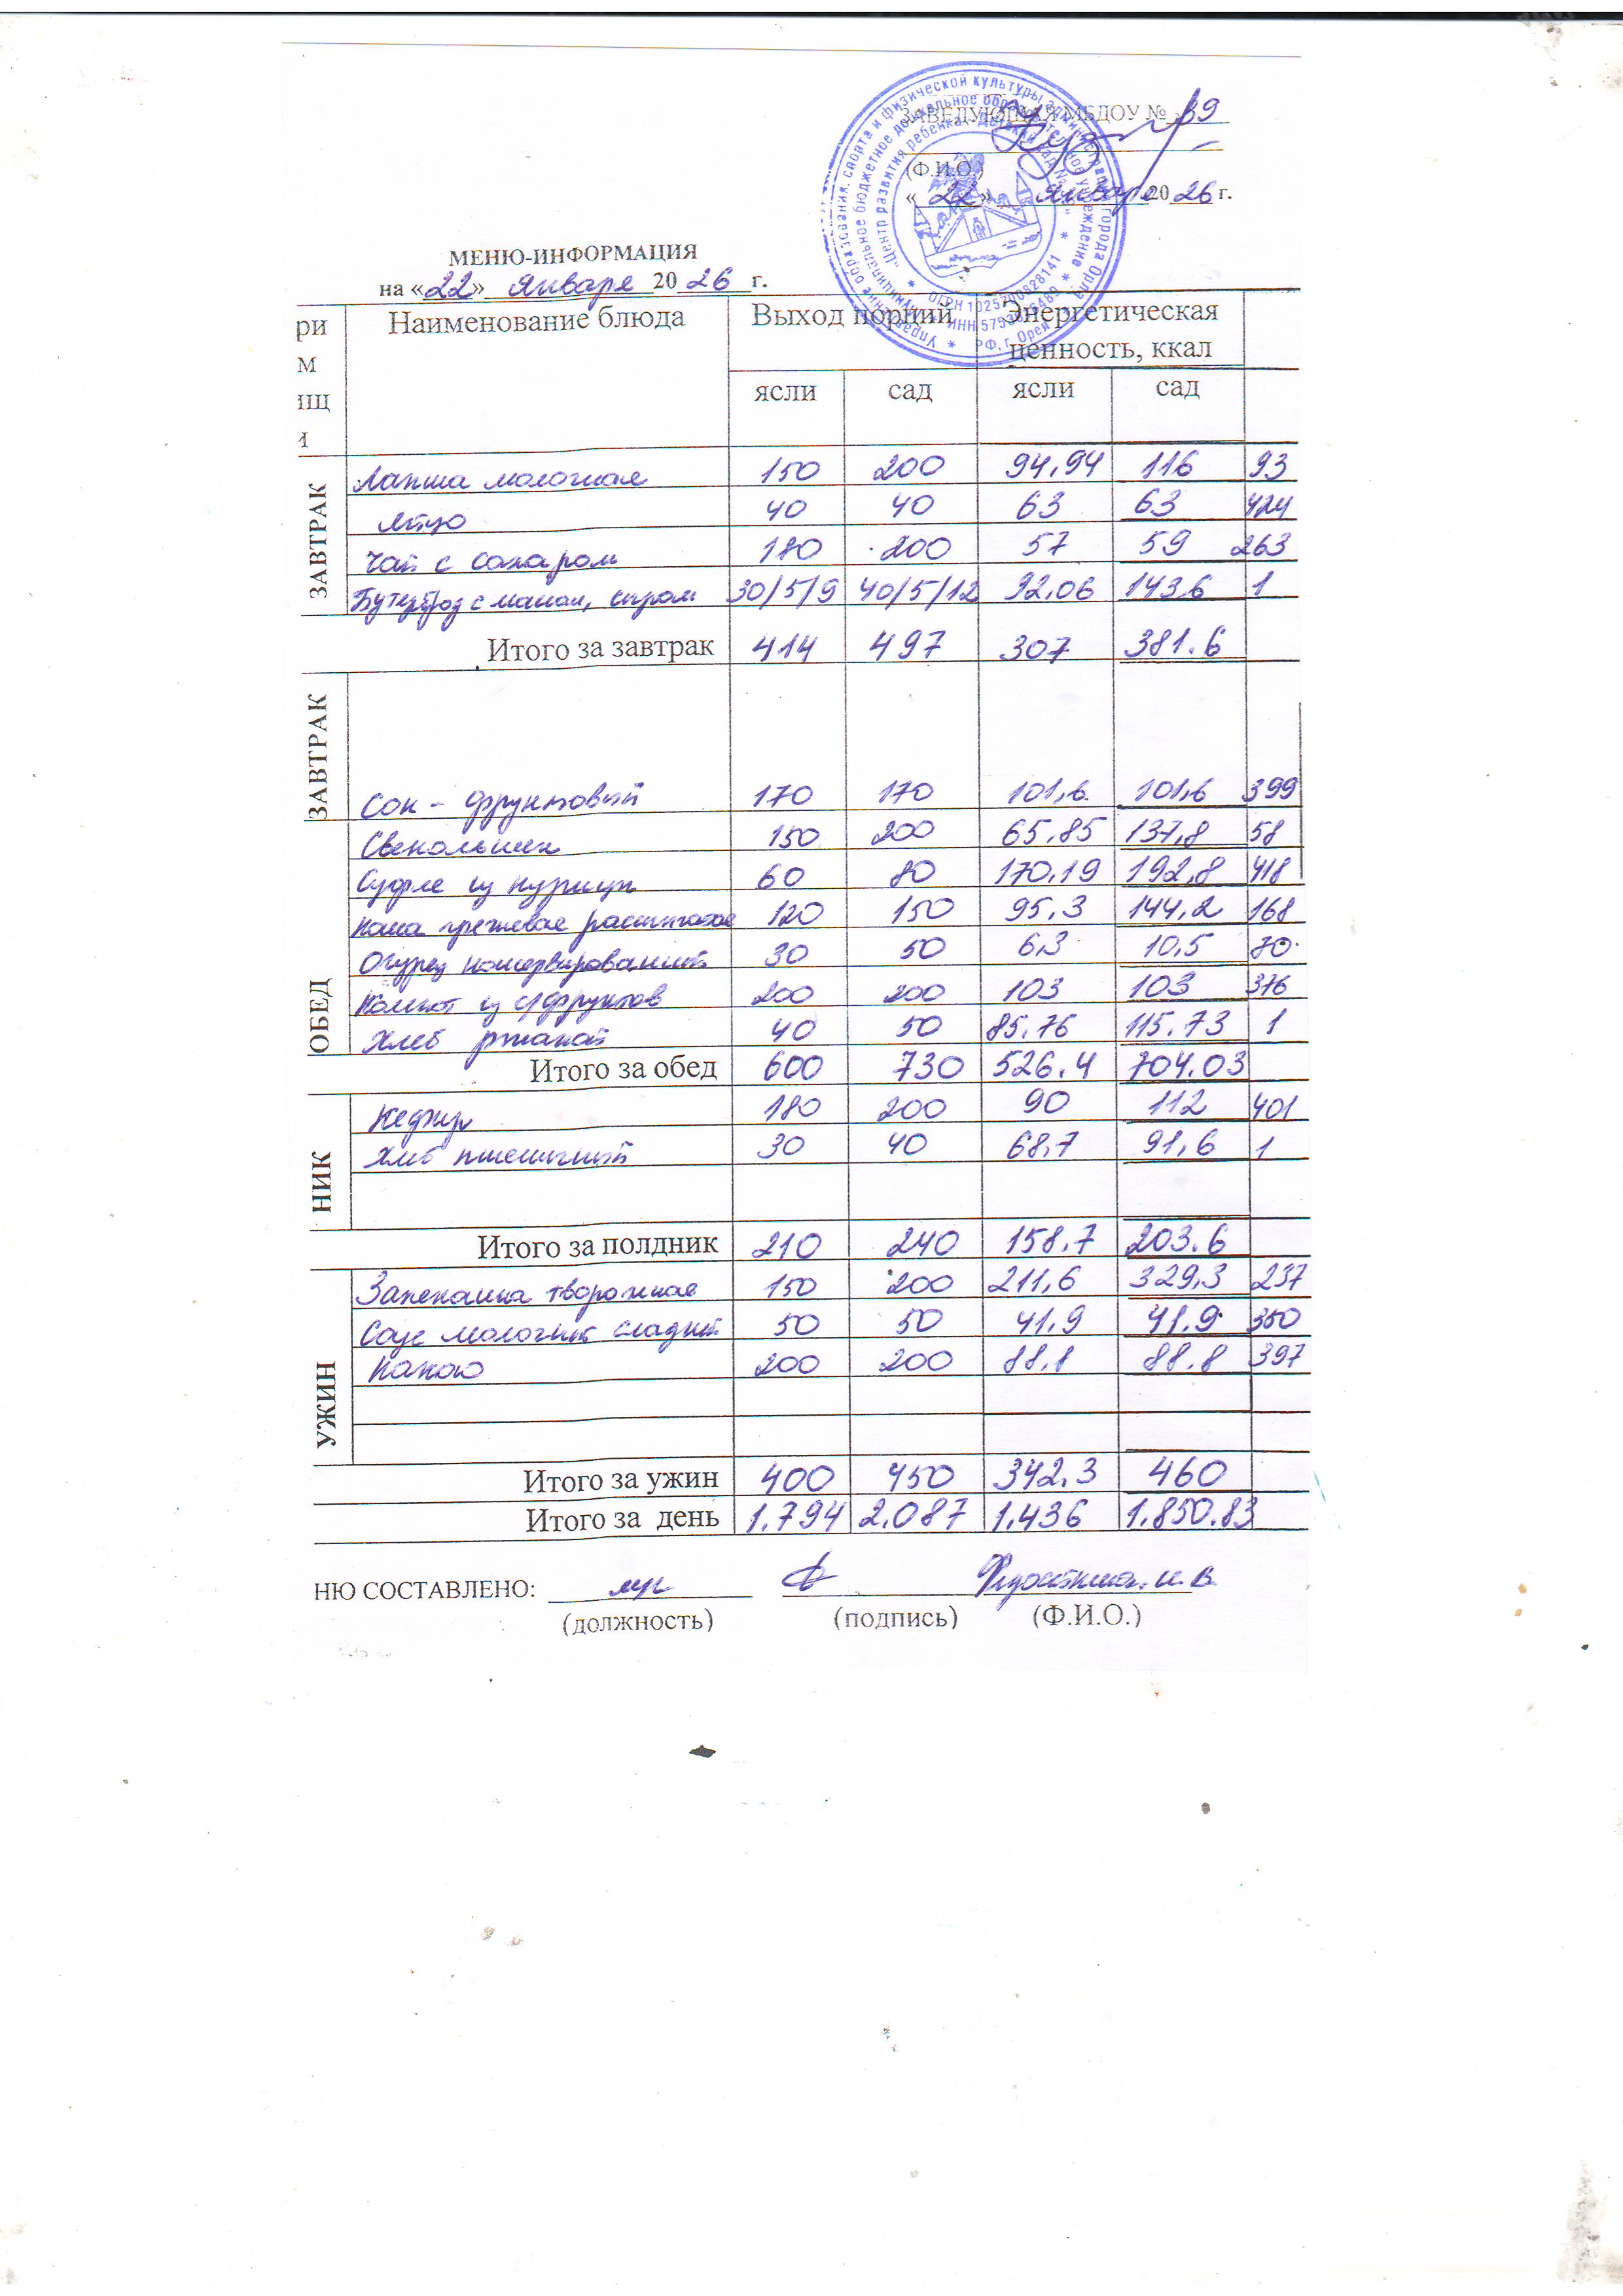 ЗАВЕДУЮЩАЯ МБДОУ № 39
(Ф.И.О.)
« 22 » января 20 26 г.
Управление образования, спорта и физической культуры администрации города Орла
Муниципальное бюджетное дошкольное образовательное учреждение
"Центр развития ребенка - детский сад №
ОГРН 1025700828141
ИНН
РФ, г. Орел
МЕНЮ-ИНФОРМАЦИЯ
на « 22 » января 20 26 г.
РИ Наименование блюда Выход порций Энергетическая
М ценность, ккал
ПЩ ясли сад ясли сад
И
ЗАВТРАК
Лапша молочная 150 200 94,94 116 93
Яйцо 40 40 63 63 424
Чай с сахаром 180 200 57 59 263
Бутерброд с маслом, сыром 30/5/9 40/5/12 92,06 143.6 1
Итого за завтрак 414 497 307 381.6
ЗАВТРАК
Сок - фруктовый 170 170 101,6 101,6 399
ОБЕД
Свекольник 150 200 65,85 137,8 58
Суфле из курицы 60 80 170,19 192,8 418
Каша гречневая рассыпчатая 120 150 95,3 144,2 168
Огурец консервированный 30 50 6,3 10,5 70
Компот из с/фруктов 200 200 103 103 376
Хлеб ржаной 40 50 85.76 115.73 1
Итого за обед 600 730 526.4 704.03
НИК
Кефир 180 200 90 112 401
Хлеб пшеничный 30 40 68,7 91,6 1
Итого за полдник 210 240 158.7 203.6
УЖИН
Запеканка творожная 150 200 211,6 329,3 237
Соус молочный сладкий 50 50 41,9 41,9 350
Какао 200 200 88.8 88.8 397
Итого за ужин 400 450 342.3 460
Итого за день 1.794 2.087 1.436 1.850.83
НЮ СОСТАВЛЕНО:
(должность) (подпись) (Ф.И.О.)